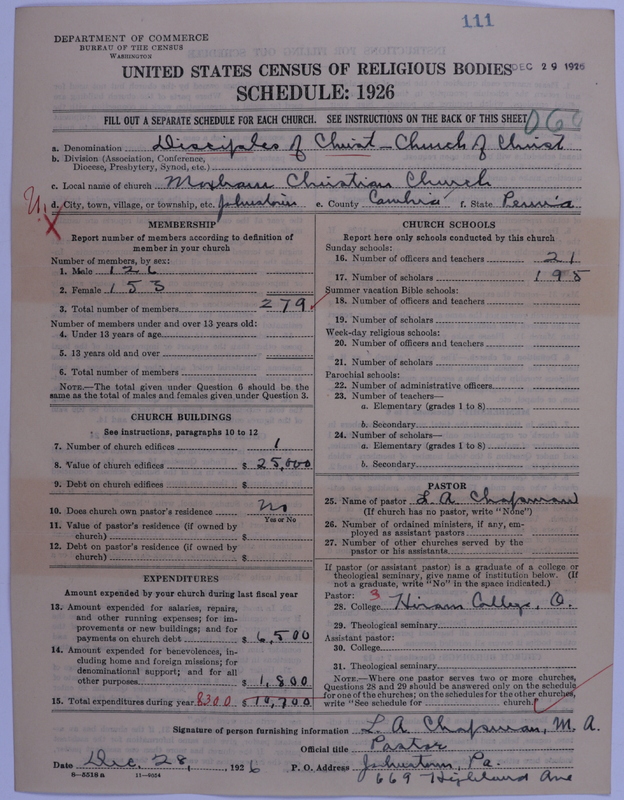 111
DEPARTMENT OF COMMERCE
BUREAU OF THE CENSUS
WASHINGTON
UNITED STATES CENSUS OF RELIGIOUS BODIES
DEC 29 1926
SCHEDULE: 1926
FILL OUT A SEPARATE SCHEDULE FOR EACH CHURCH. SEE INSTRUCTIONS ON THE BACK OF THIS SHEET
060
a. Denomination Disciples of Christ - Church of Christ
b. Division (Association, Conference, Diocese, Presbytery, Synod, etc.)
c. Local name of church Moxham Christian Church
d. City, town, village, or township, etc. Johnstown e. County Cambria f. State Penn'a
U.
X
MEMBERSHIP
Report number of members according to definition of member in your church
Number of members, by sex:
1. Male 126
2. Female 153
3. Total number of members 279
Number of members under and over 13 years old:
4. Under 13 years of age
5. 13 years old and over
6. Total number of members
NOTE.—The total given under Question 6 should be the same as the total of males and females given under Question 3.
CHURCH BUILDINGS
See instructions, paragraphs 10 to 12
7. Number of church edifices 1
8. Value of church edifices $ 25,000
9. Debt on church edifices $
10. Does church own pastor's residence No
Yes or No
11. Value of pastor's residence (if owned by church) $
12. Debt on pastor's residence (if owned by church) $
EXPENDITURES
Amount expended by your church during last fiscal year
13. Amount expended for salaries, repairs, and other running expenses; for improvements or new buildings; and for payments on church debt $ 6,500
14. Amount expended for benevolences, including home and foreign missions; for denominational support; and for all other purposes $ 1,800
15. Total expenditures during year 8300 $ 10,700
CHURCH SCHOOLS
Report here only schools conducted by this church
Sunday schools:
16. Number of officers and teachers 21
17. Number of scholars 195
Summer vacation Bible schools:
18. Number of officers and teachers
19. Number of scholars
Week-day religious schools:
20. Number of officers and teachers
21. Number of scholars
Parochial schools:
22. Number of administrative officers
23. Number of teachers—
a. Elementary (grades 1 to 8)
b. Secondary
24. Number of scholars—
a. Elementary (grades 1 to 8)
b. Secondary
PASTOR
25. Name of pastor L. A. Chapman
(If church has no pastor, write "None")
26. Number of ordained ministers, if any, employed as assistant pastors
27. Number of other churches served by the pastor or his assistants
If pastor (or assistant pastor) is a graduate of a college or theological seminary, give name of institution below. (If not a graduate, write "No" in the space indicated.)
Pastor: 3
28. College Hiram College, O.
29. Theological seminary
Assistant pastor:
30. College
31. Theological seminary
NOTE.—Where one pastor serves two or more churches, Questions 28 and 29 should be answered only on the schedule for one of the churches; on the schedules for the other churches, write "See schedule for church."
Signature of person furnishing information L. A. Chapman, M. A.
Official title Pastor
Date Dec. 28, 1926 P. O. Address Johnstown, Pa.
669 Highland Ave
8—5518 a 11—9024